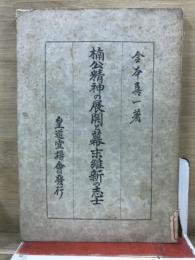 金本喜一著
楠公精神の展開より幕末維新の志士
皇道宣揚會發行